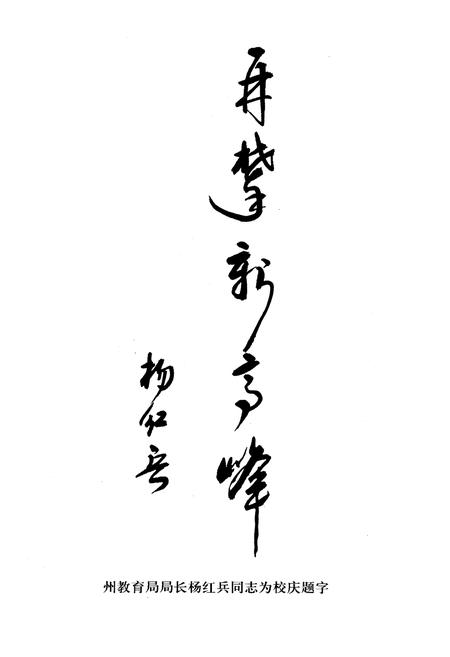 再攀新高峰
杨红兵
州教育局局长杨红兵同志为校庆题字